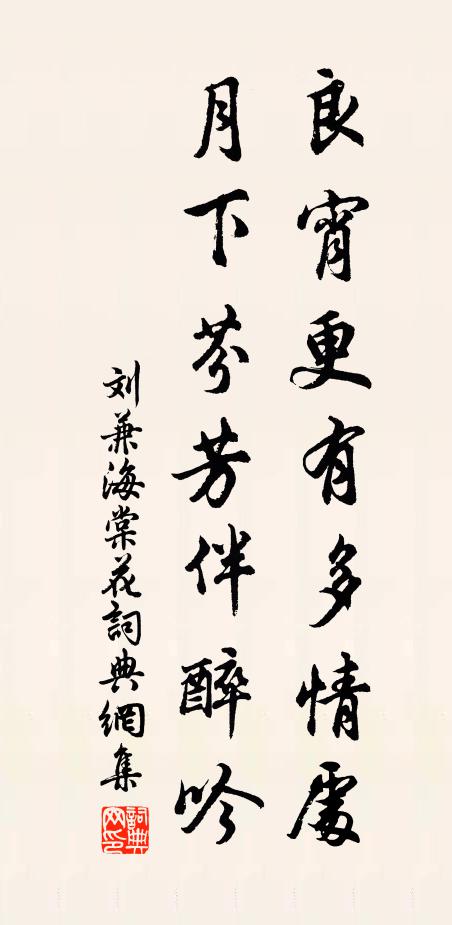 良宵更有多情處
月下芬芳伴醉吟
刘兼海棠花詞典網集
詞典網印